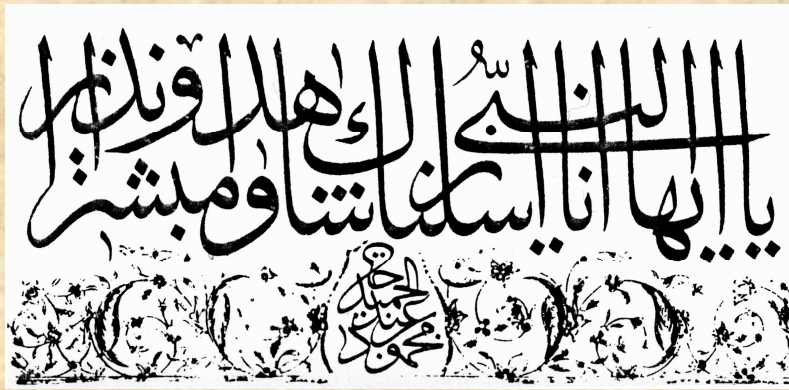 يا ايها النبى انا ارسلناك شاهدا ومبشرا ونذيرا
محمود عبد الحميد